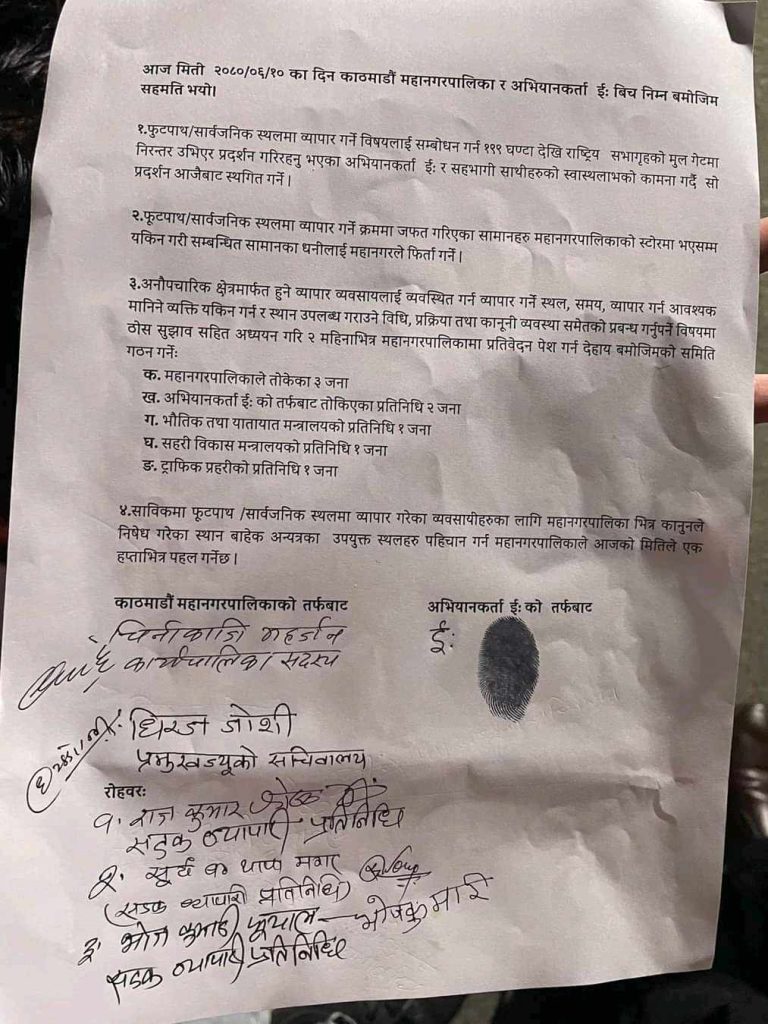 आज मिती २०८०/०६/१० का दिन काठमाडौं महानगरपालिका र अभियानकर्ता ईः बिच निम्न बमोजिम
सहमति भयो।
१.फुटपाथ/सार्वजनिक स्थलमा व्यापार गर्ने विषयलाई सम्बोधन गर्न १९९ घण्टा देखि राष्ट्रिय सभागृहको मुल गेटमा
निरन्तर उभिएर प्रदर्शन गरिरहनु भएका अभियानकर्ता ईः र सहभागी साथीहरुको स्वास्थलाभको कामना गर्दै सो
प्रदर्शन आजैबाट स्थगित गर्ने।
२.फूटपाथ/सार्वजनिक स्थलमा व्यापार गर्ने क्रममा जफत गरिएका सामानहरु महानगरपालिकाको स्टोरमा भएसम्म
यकिन गरी सम्बन्धित सामानका धनीलाई महानगरले फिर्ता गर्ने।
३.अनौपचारिक क्षेत्रमार्फत हुने व्यापार व्यवसायलाई व्यवस्थित गर्न व्यापार गर्ने स्थल, समय, व्यापार गर्न आवश्यक
मानिने व्यक्ति यकिन गर्न र स्थान उपलब्ध गराउने विधि, प्रक्रिया तथा कानूनी व्यवस्था समेतको प्रबन्ध गर्नुपर्ने विषयमा
ठोस सुझाव सहित अध्ययन गरि २ महिनाभित्र महानगरपालिकामा प्रतिवेदन पेश गर्न देहाय बमोजिमको समिति
गठन गर्नेः
क. महानगरपालिकाले तोकेका ३ जना
ख. अभियानकर्ता ईः को तर्फबाट तोकिएका प्रतिनिधि २ जना
ग. भौतिक तथा यातायात मन्त्रालयको प्रतिनिधि १ जना
घ. सहरी विकास मन्त्रालयको प्रतिनिधि १ जना
ङ. ट्राफिक प्रहरीको प्रतिनिधि १ जना
४.साविकमा फूटपाथ /सार्वजनिक स्थलमा व्यापार गरेका व्यवसायीहरुका लागि महानगरपालिका भित्र कानुनले
निषेध गरेका स्थान बाहेक अन्यत्रका उपयुक्त स्थलहरु पहिचान गर्न महानगरपालिकाले आजको मितिले एक
हप्ताभित्र पहल गर्नेछ।
काठमाडौं महानगरपालिकाको तर्फबाट
चिनीकाजि महर्जन
कार्यपालिका सदस्य
धिरज जोशी
प्रमुखज्यूको सचिवालय
अभियानकर्ता ईः को तर्फबाट
ईः
रोहवरः
१. राज कुमार
सडक व्यापारी प्रतिनिधि
२. सूर्य व० थापा मगर
(सडक व्यापारी प्रतिनिधि)
३. भोज कुमारी भोजकुमारी
सडक व्यापारी प्रतिनिधि